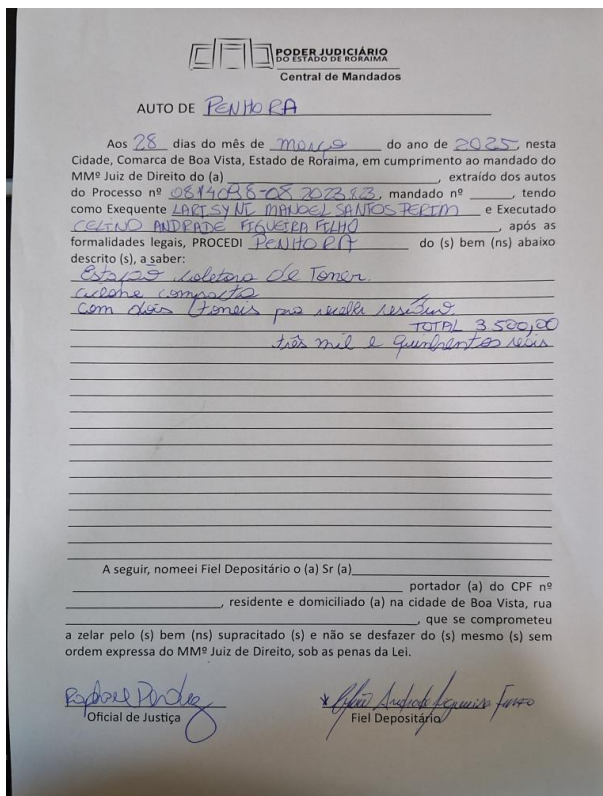 PODER JUDICIÁRIO
DO ESTADO DE RORAIMA
Central de Mandados
AUTO DE PENHORA
Aos 28 dias do mês de março do ano de 2025, nesta
Cidade, Comarca de Boa Vista, Estado de Roraima, em cumprimento ao mandado do
MMº Juiz de Direito do (a) , extraído dos autos
do Processo nº , mandado nº , tendo
como Exequente MANOEL SANTOS e Executado
CELINO ANDRADE FIGUEIRA FILHO , após as
formalidades legais, PROCEDI PENHORA do (s) bem (ns) abaixo
descrito (s), a saber:
Estação coletora de Toner.
ciclone compacto
com dois toneis pra receber resíduo.
TOTAL 3.500,00
três mil e quinhentos reais
A seguir, nomeei Fiel Depositário o (a) Sr (a)
portador (a) do CPF nº
, residente e domiciliado (a) na cidade de Boa Vista, rua
, que se comprometeu
a zelar pelo (s) bem (ns) supracitado (s) e não se desfazer do (s) mesmo (s) sem
ordem expressa do MMº Juiz de Direito, sob as penas da Lei.
Oficial de Justiça
Fiel Depositário